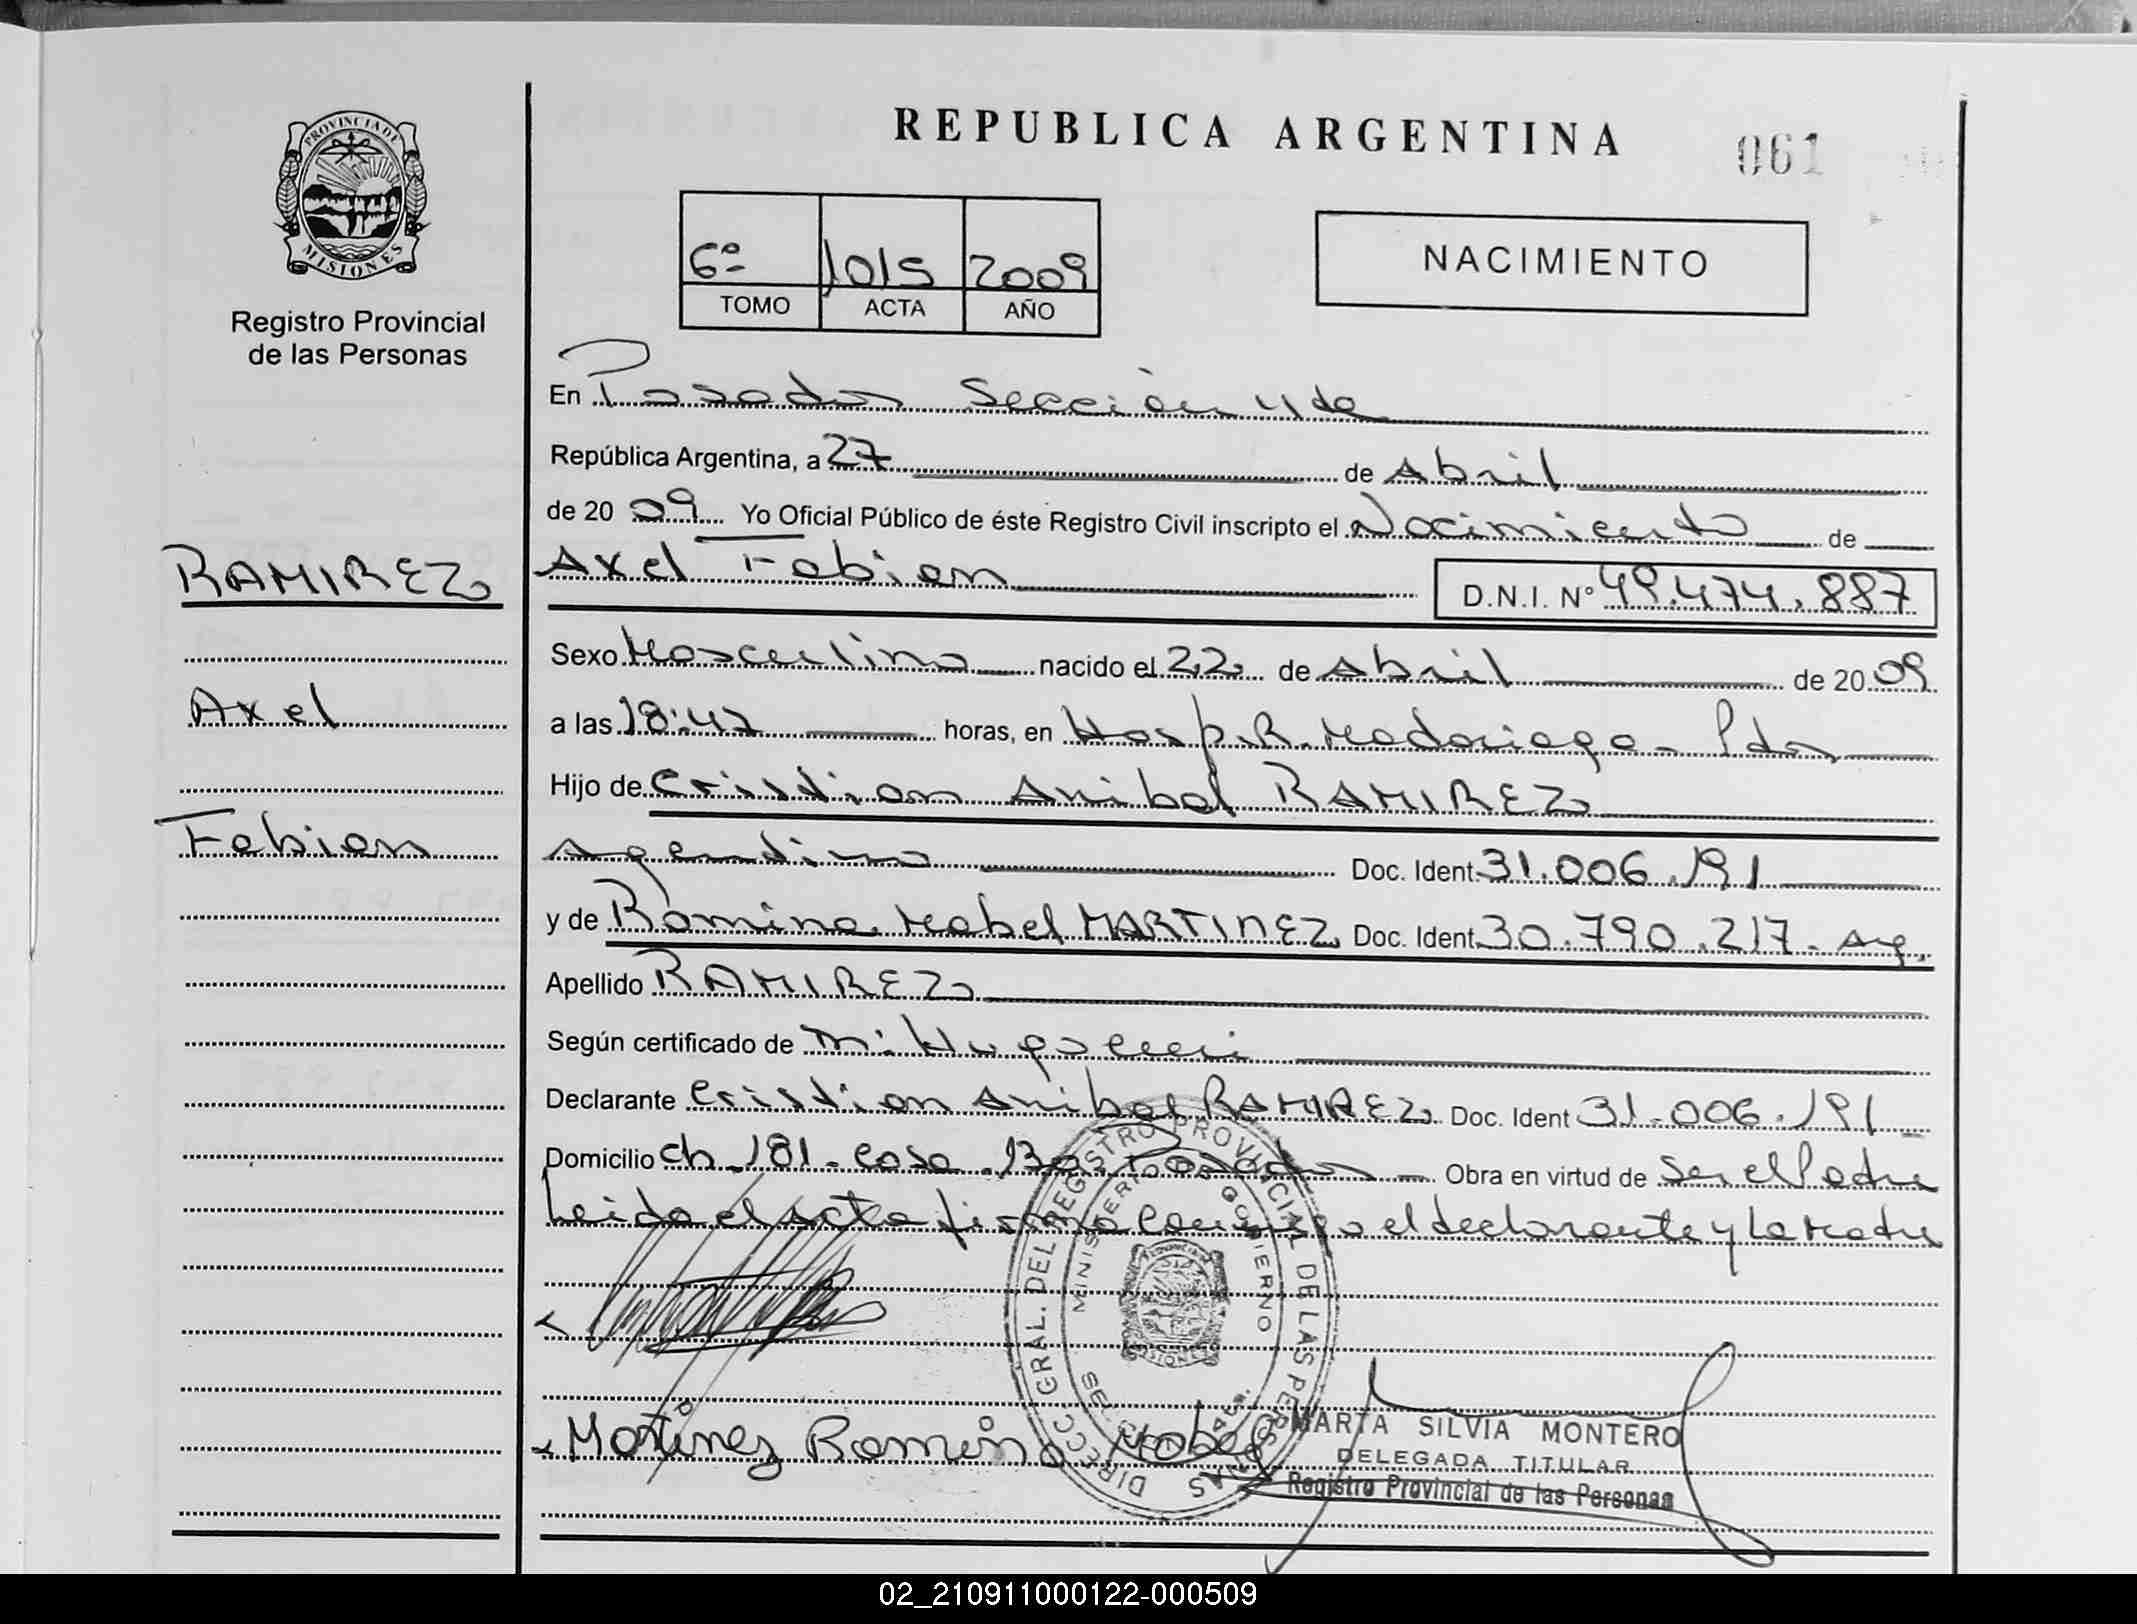 REPUBLICA ARGENTINA
061
PROVINCIA DE MISIONES
Registro Provincial
de las Personas
6º 1015 2009
TOMO ACTA AÑO
NACIMIENTO
En Posadas Sección 4ta
República Argentina, a 27 de Abril
de 2009 Yo Oficial Público de éste Registro Civil inscripto el Nacimiento de
RAMIREZ
Axel Fabian D.N.I. Nº 49.474.887
Sexo Masculino nacido el 22 de Abril de 2009
Axel
a las 18:47 horas, en Hosp. R. Madariaga - Pdas
Hijo de Cristian Anibal RAMIREZ
Fabian
Agentino Doc. Ident. 31.006.191
y de Romina Mabel MARTINEZ Doc. Ident. 30.790.217 - Arg.
Apellido RAMIREZ
Según certificado de M.
Declarante Cristian Anibal RAMIREZ Doc. Ident 31.006.191
Domicilio Ch 181 - Casa 130 Posadas Obra en virtud de Ser el Padre
Leida el Acta firma conmigo el declarante y la Madre
DIRECC. GRAL. DEL REGISTRO PROVINCIAL DE LAS PERSONAS
MINISTERIO DE GOBIERNO
MISIONES
Martinez Romina Mabel
MARTA SILVIA MONTERO
DELEGADA TITULAR
Registro Provincial de las Personas
02_210911000122-000509